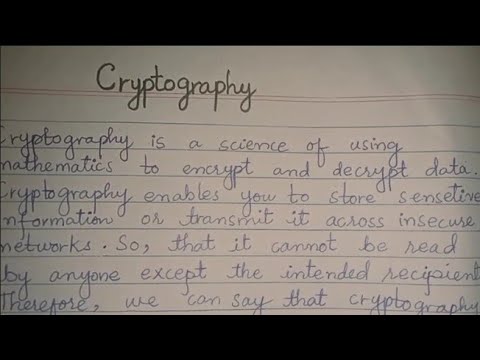 Cryptography
Cryptography is a science of using
mathematics to encrypt and decrypt data.
Cryptography enables you to store sensetive
information or transmit it across insecure
networks. So, that it cannot be read
by anyone except the intended recipient
Therefore, we can say that cryptography